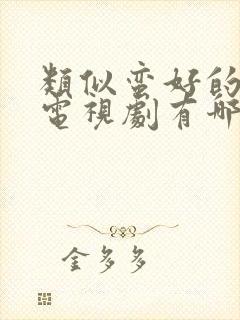 類似蛮好的
電視劇有哪
金多多